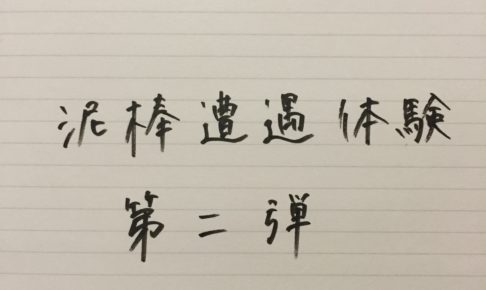 泥棒遭遇体験
第二弾